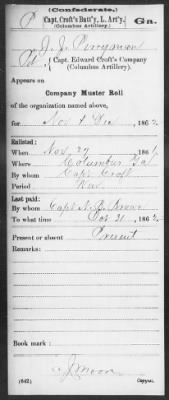 (Confederate.)
P Capt. Croft's Batt'y, L. Art'y. Ga.
(Columbus Artillery.)
J. J. Perryman
Pvt, { Capt. Edward Croft's Company
(Columbus Artillery).
Appears on
Company Muster Roll
of the organization named above,
for Nov & Dec, 186
Enlisted:
When Nov 27, 186
Where Columbus Ga
By whom Capt Croft
Period War
Last paid:
By whom Capt
To what time Oct 31, 186
Present or absent Present
Remarks:
Book mark:
Moon
(642) Copyist.